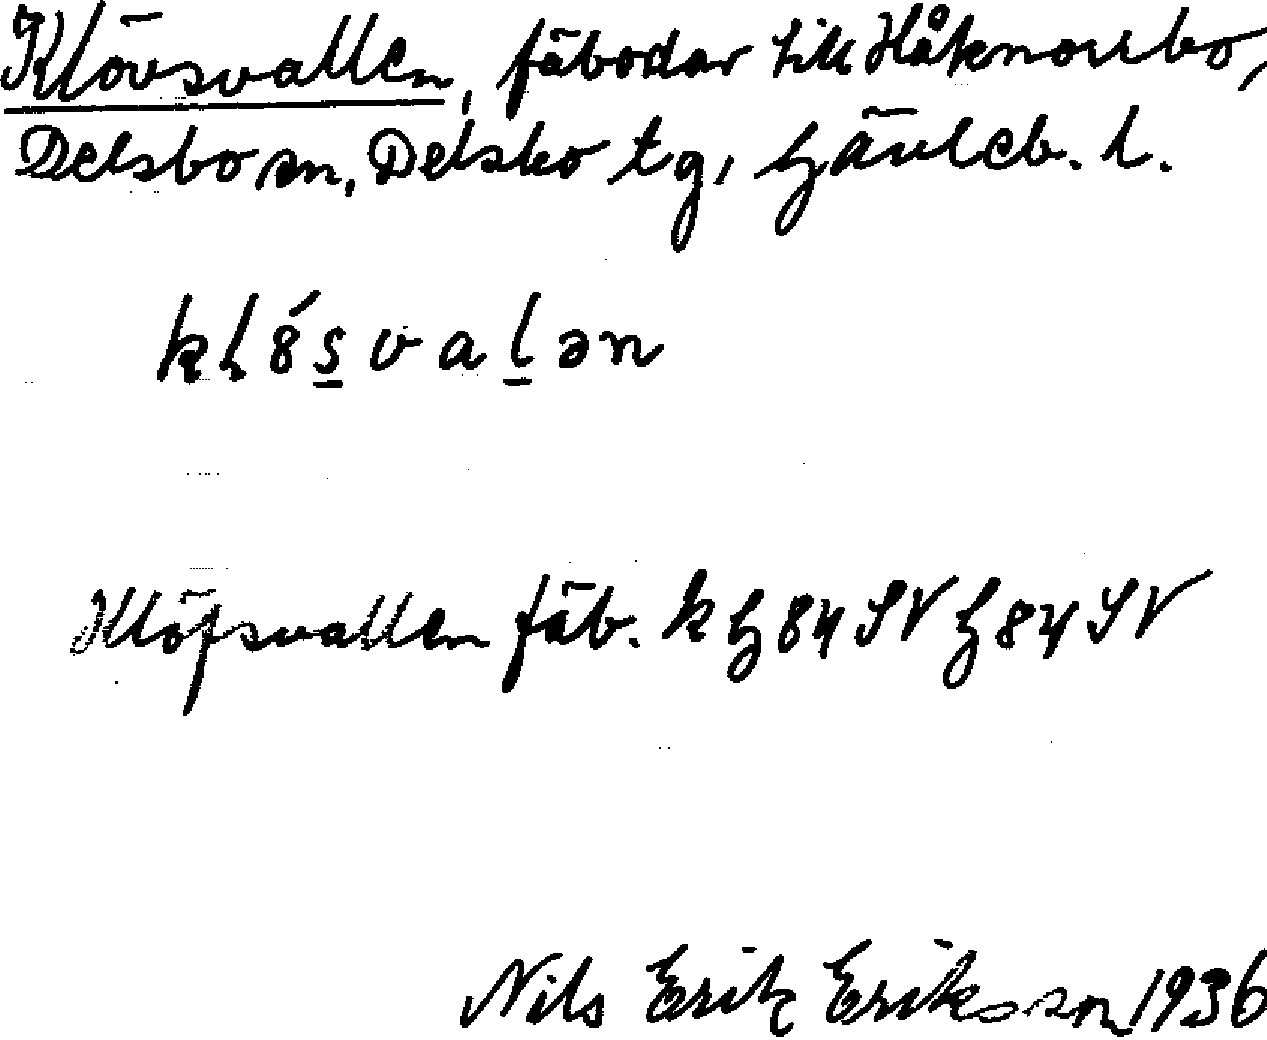 Klövsvallen, fäbodar till Håknorrbo,
Delsbo sn, Delsbo tg, Gävleb. l.
klǿs̲val̲ən
Klöfsvallen fäb. k G 84 SV G 84 SV
Nils Erik Eriksson 1936